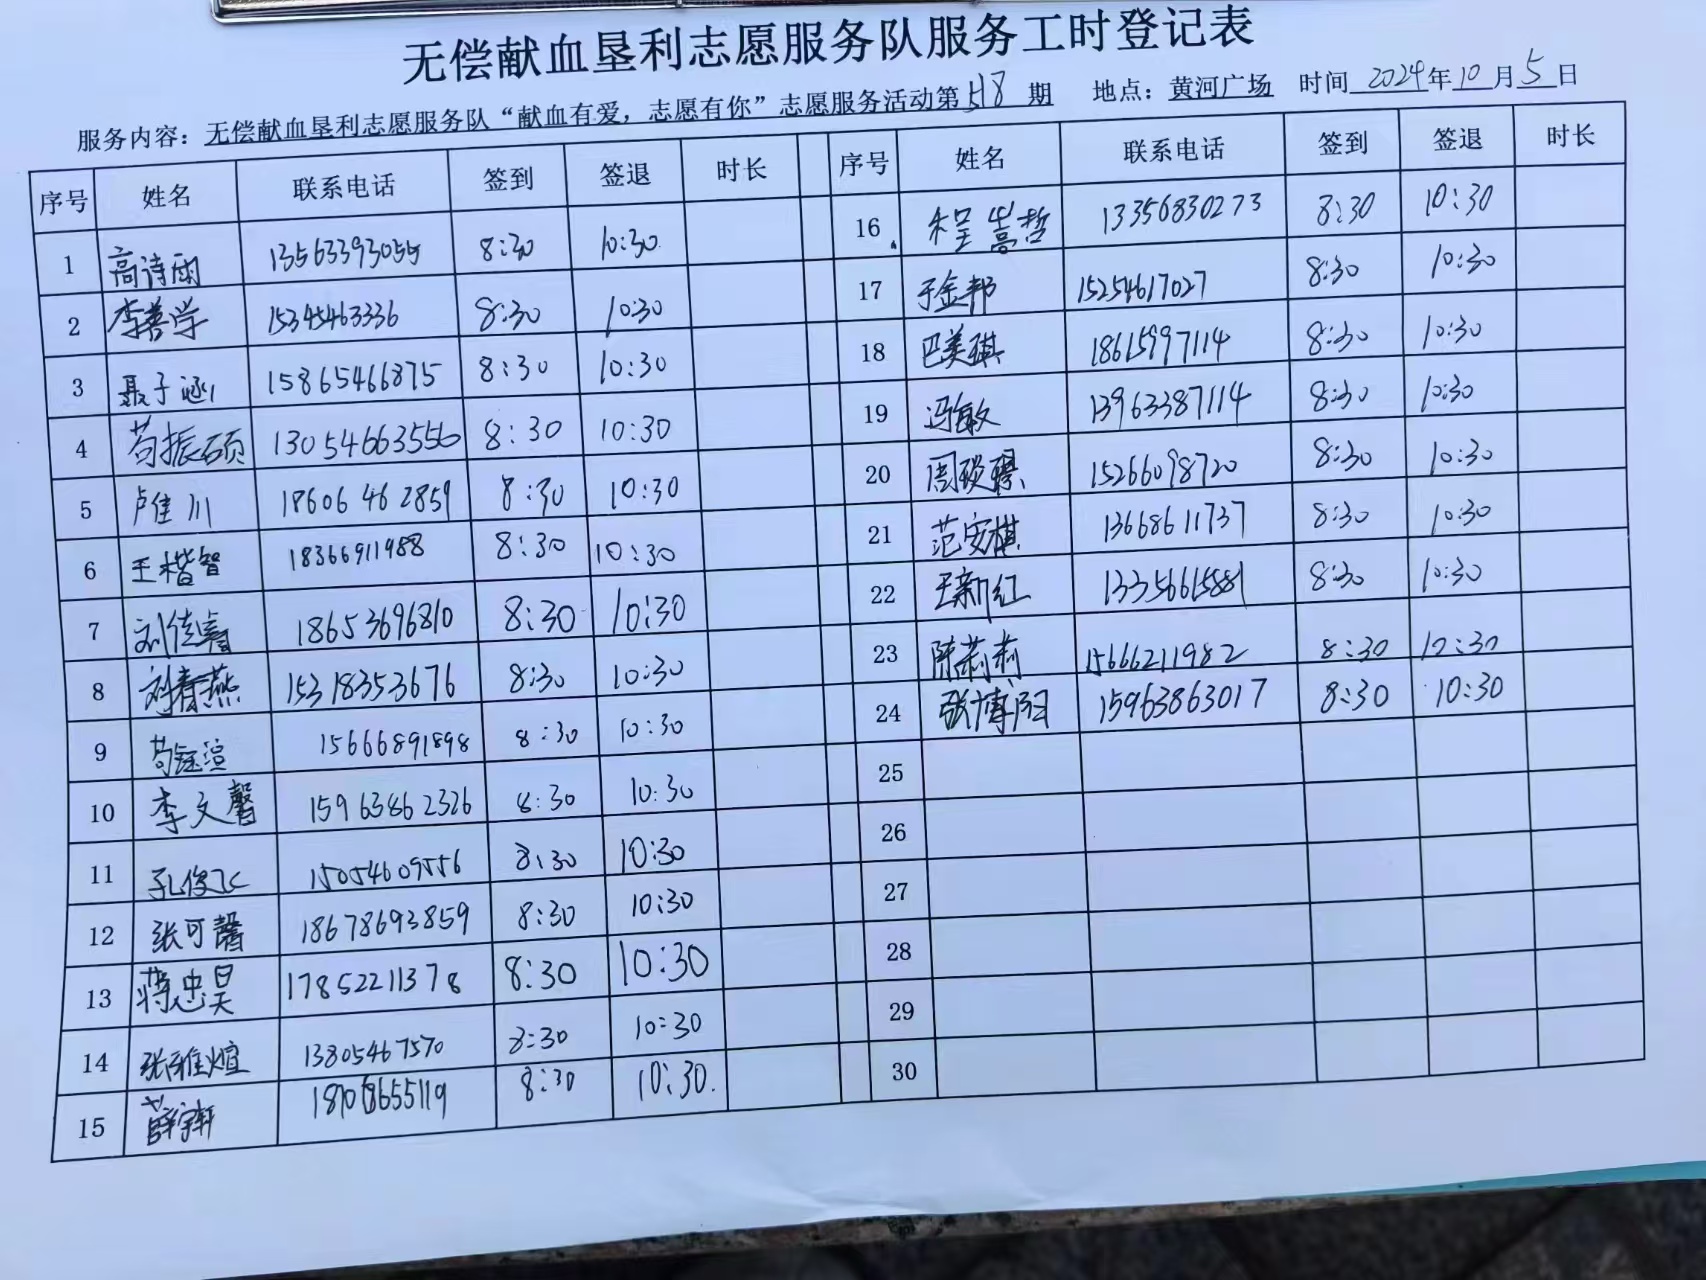 无偿献血垦利志愿服务队服务工时登记表
服务内容：无偿献血垦利志愿服务队“献血有爱，志愿有你”志愿服务活动第518期 地点：黄河广场 时间2024年10月5日
序号 姓名 联系电话 签到 签退 时长 序号 姓名 联系电话 签到 签退 时长
1 高诗雨 13563393055 8:30 10:30
2 李善学 15345463336 8:30 10:30
3 聂子涵 15865466875 8:30 10:30
4 苟振硕 13054663556 8:30 10:30
5 卢佳川 18606462859 8:30 10:30
6 王楷智 18366911988 8:30 10:30
7 刘德睿 18653696810 8:30 10:30
8 刘春燕 15318353676 8:30 10:30
9 苟钰渲 15666891898 8:30 10:30
10 李文馨 15963862326 8:30 10:30
11 孔俊飞 15054609556 8:30 10:30
12 张可馨 18678693859 8:30 10:30
13 蒋忠昊 17852211378 8:30 10:30
14 张雅煊 13805467570 8:30 10:30
15 薛宇轩 8:30 10:30.
16 程嵩哲 13356830273 8:30 10:30
17 于金邦 15254617027 8:30 10:30
18 巴美琪 18615997114 8:30 10:30
19 冯敏 13963387114 8:30 10:30
20 周琰璟 15266098720 8:30 10:30
21 范安棋 13668611737 8:30 10:30
22 王新红 13356615881 8:30 10:30
23 陈莉莉 15666211982 8:30 10:30
24 张博阳 15963863017 8:30 10:30
25
26
27
28
29
30